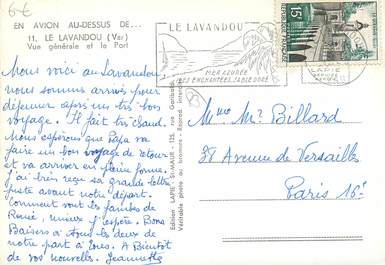 6€
EN AVION AU-DESSUS DE...
11. LE LAVANDOU (Var)
Vue générale et le Port
Nous voici au Lavandou,
nous sommes arrivés pour
déjeuner après un très bon
voyage. Il fait très chaud.
Nous espérons que Papa va
faire un bon voyage de retour
et va arriver en pleine forme.
J'ai bien reçu sa grande lettre
juste avant notre départ.
Comment vont les jambes de
Renée, mieux j'espère. Bons
Baisers à tous les deux de
notre part à tous. A Bientôt
de vos nouvelles. Jeannette
Edition LAPIE - St-MAUR - 125, rue Garibaldi
Véritable photo au bromure - Reprod. interdite
LE LAVANDOU
MER AZURÉE
ILES ENCHANTÉES, SABLE DORÉ
15F
Mme Mr Billard
38 Avenue de Versailles
Paris 16e